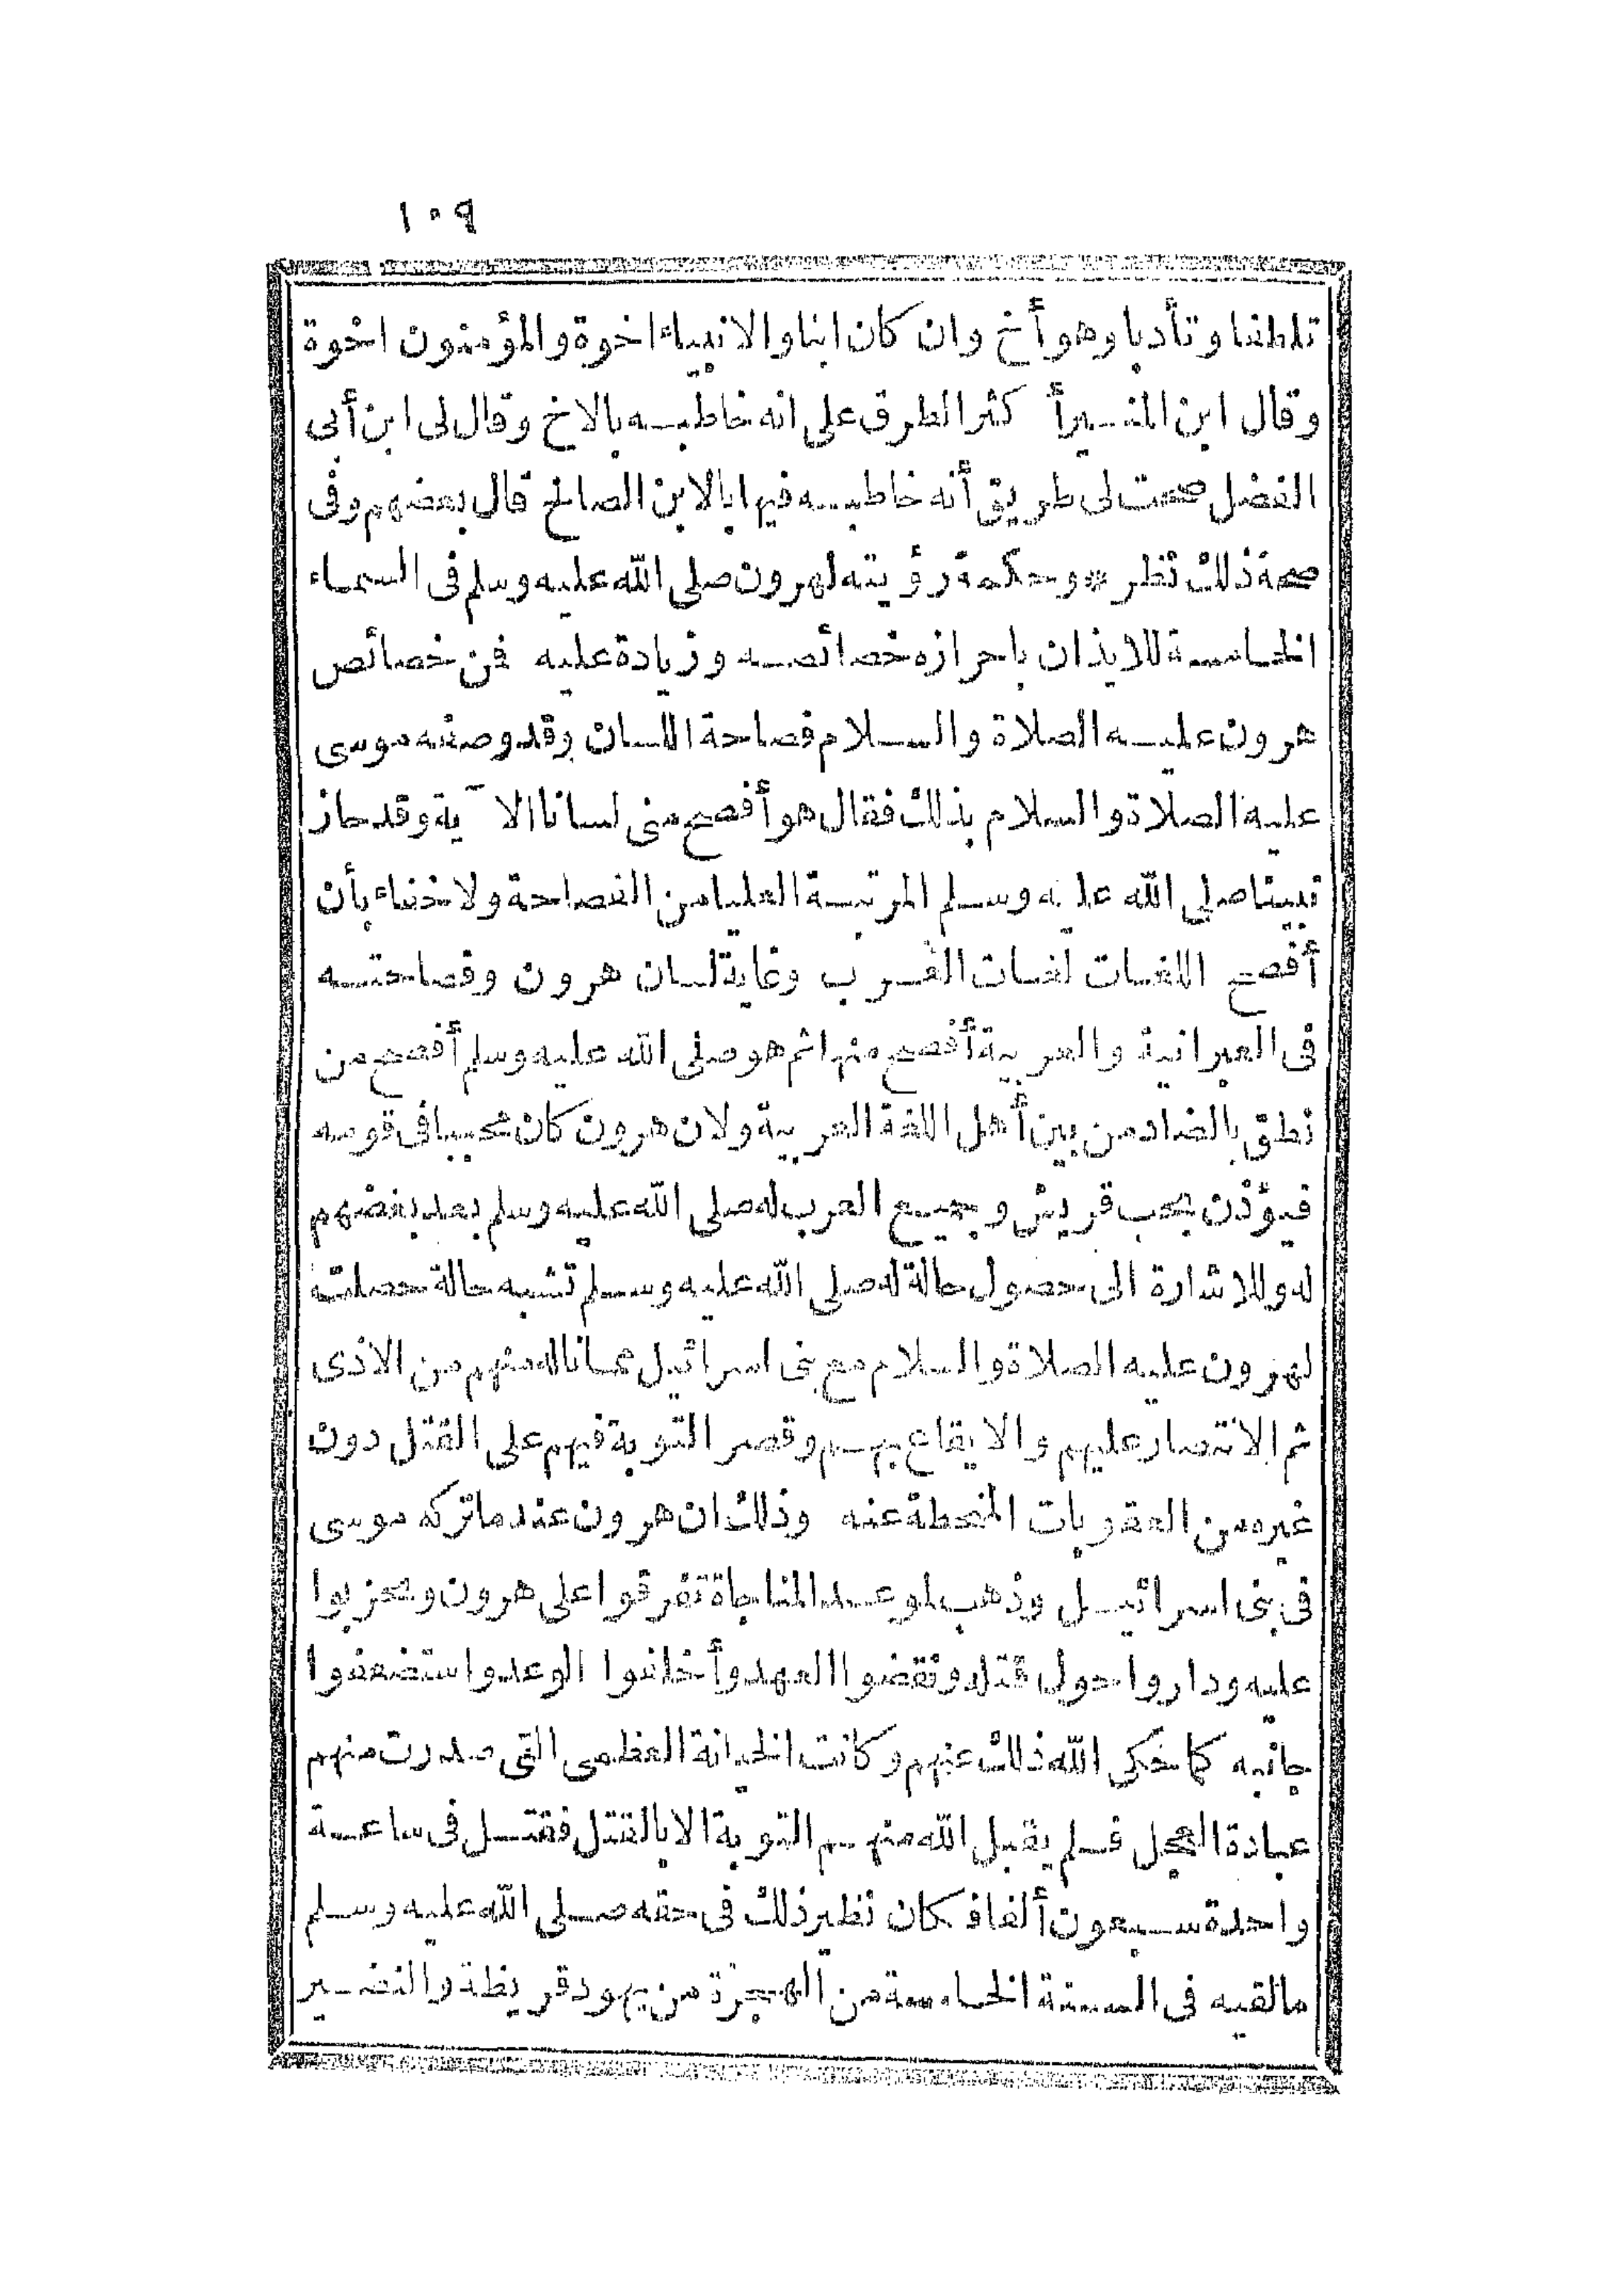 ١٠٩
تلطفا وتأدبا وهو أخ وان كان ابنا والانبياء اخوة والمؤمنون اخوة
وقال ابن المنير أكثر الطرق على انه خاطبه بالاخ وقال لى ابن أبى
الفضل صحت لى طريق أنه خاطبه فيها بالابن الصالح قال بعضهم وفى
صحة ذلك نظر * وحكمة رؤيته لهرون صلى الله عليه وسلم فى السماء
الخامسة للايذان باحرازه خصائصه وزيادة عليه فمن خصائص
هرون عليه الصلاة والسلام فصاحة اللسان وقد وصفه موسى
عليه الصلاة والسلام بذلك فقال هو أفصح منى لسانا الآية وقد حاز
نبينا صلى الله عليه وسلم المرتبة العليا من الفصاحة ولا خفاء بأن
أفصح اللغات لغات العرب وغاية لسان هرون وفصاحته
فى العبرانية والعربية أفصح منها ثم هو صلى الله عليه وسلم أفصح من
نطق بالضاد من بين أهل اللغة العربية ولان هرون كان محببا فى قومه
فيؤذن بحب قريش وجميع العرب له صلى الله عليه وسلم بعد بغضهم
له وللاشارة الى حصول حالة له صلى الله عليه وسلم تشبه حالة حصلت
لهرون عليه الصلاة والسلام مع بنى اسرائيل مما ناله منهم من الاذى
ثم الانتصار عليهم والايقاع بهم وقصر التوبة فيهم على القتل دون
غيره من العقوبات المنحطة عنه وذلك ان هرون عندما تركه موسى
فى بنى اسرائيل وذهب لوعد المناجاة تفرقوا على هرون وتحزبوا
عليه وداروا حول قتله ونقضوا العهد وأخلفوا الوعد واستضعفوا
جانبه كما حكى الله ذلك عنهم وكانت الخيانة العظمى التى صدرت منهم
عبادة العجل فلم يقبل الله منهم التوبة الا بالقتل فقتل فى ساعة
واحدة سبعون ألفا فكان نظير ذلك فى حقه صلى الله عليه وسلم
مالقيه فى السنة الخامسة من الهجرة من يهود قريظة والنضير